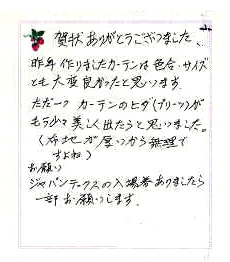 賀状ありがとうございました、
昨年作りましたカーテンは色合・サイズ
とも大変良かったと思います。
ただ一つカーテンのヒダ(プリーツ)が
もう少々美しく出たらと思いました。
(布地が厚いから無理で
すよね)
お願い
ジャパンテックスの入場券ありましたら
一部お願いします。